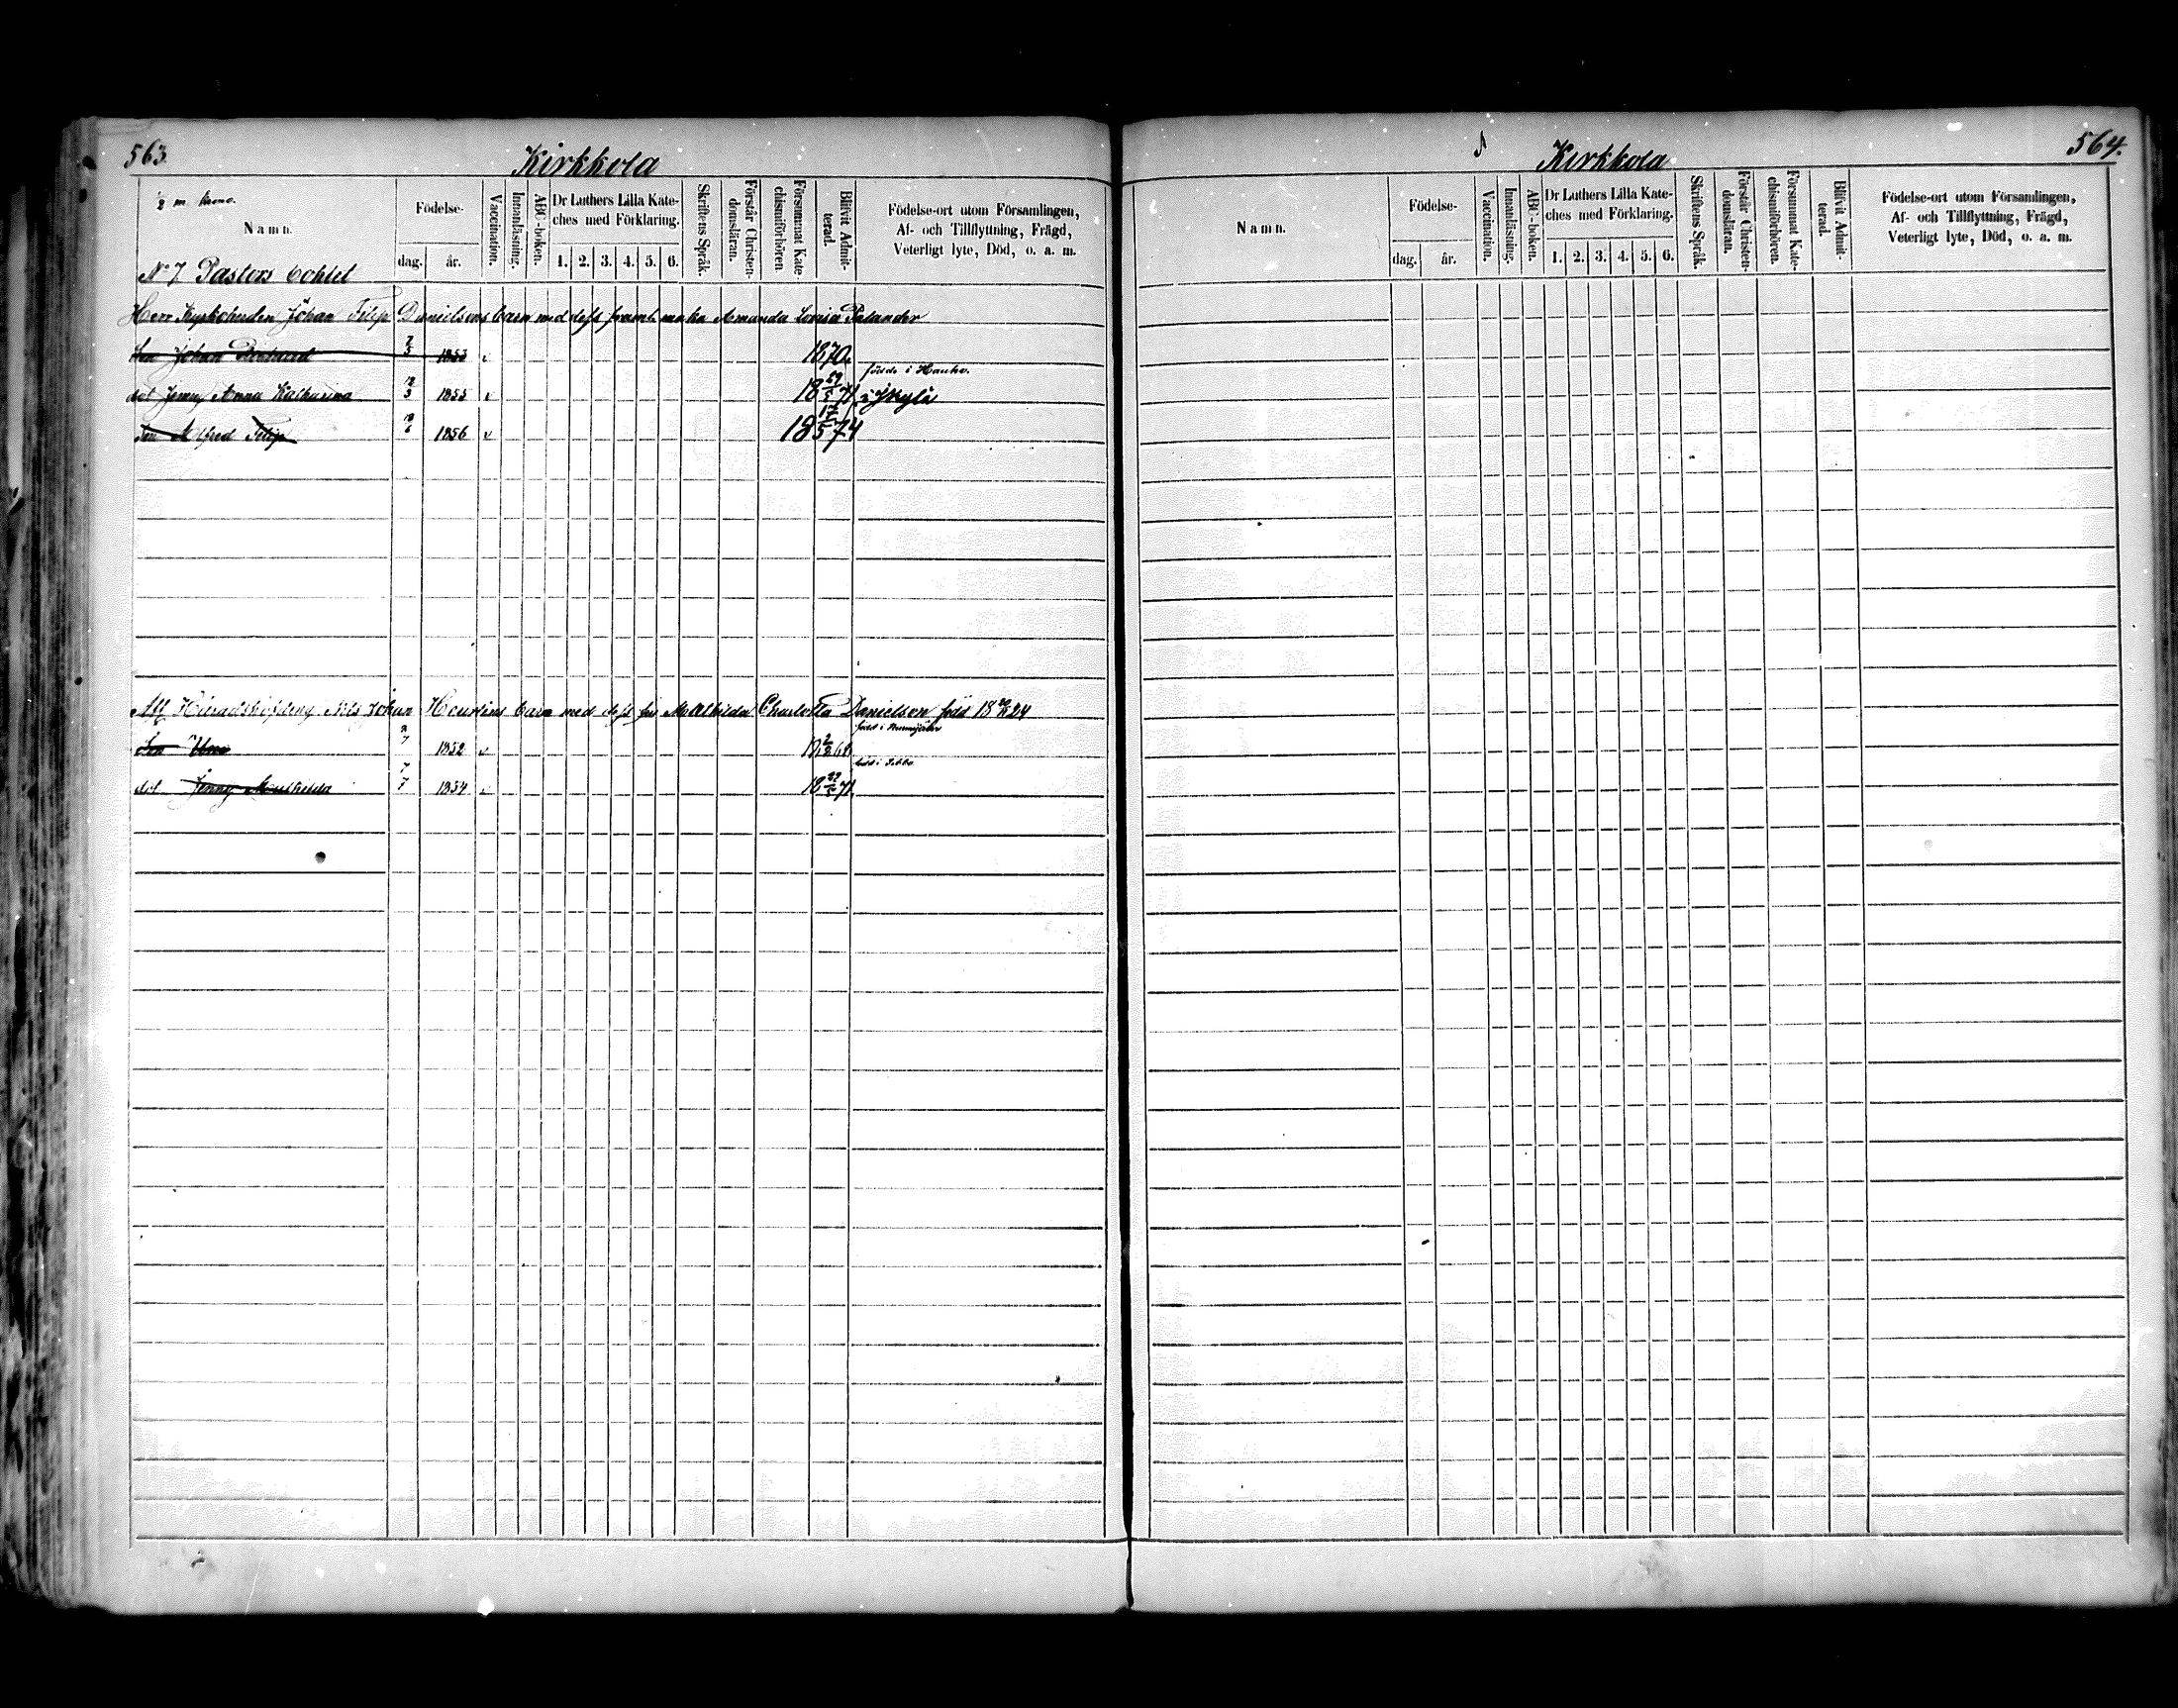 563.
Kirkkola
Namn.
Födelse-
dag.
år.
Vaccination.
Innanläsning.
ABC-boken.
Dr Luthers Lilla Kate-
ches med Förklaring.
1. 2. 3. 4. 5. 6.
Skriftens Språk.
Förstår Christen-
domsläran.
Försummat Kate-
chismiförhören.
Blifvit Admit-
terad.
Födelse-ort utom Församlingen,
Af- och Tillflyttning, Frägd,
Veterligt lyte, Död, o. a. m.
No 7 Pastors
Herr Kyrkoherden Johan Filip Danielsons barn med dess framl. maka Amanda Lovisa Palander
Son Johan 1853 1870.
födde i Hauho.
dot Jenny Anna Katharina 12/3 1855 18 29/5 71
Son Alfred Filip 1856 18 17/5 74
Häradshöfding Nils Johan barn med dess fru Mathilda Charlotta Danielson född 18 24
Son 1852 18 68
född i Sibbo
dot Jenny Mathilda 7/7 1854 18 29/5 71.
Kirkkola
564.
Namn.
Födelse-
dag.
år.
Vaccination.
Innanläsning.
ABC-boken.
Dr Luthers Lilla Kate-
ches med Förklaring.
1. 2. 3. 4. 5. 6.
Skriftens Språk.
Förstår Christen-
domsläran.
Försummat Kate-
chismiförhören.
Blifvit Admit-
terad.
Födelse-ort utom Församlingen,
Af- och Tillflyttning, Frägd,
Veterligt lyte, Död, o. a. m.